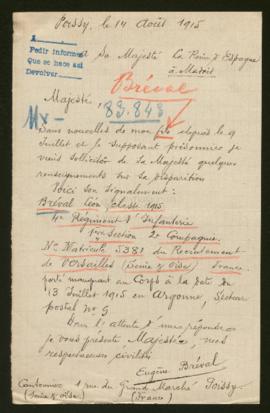 Poissy, le 14 Août 1915
Pedir informes
Que se hace así
Devolver
a Sa Majesté la Reine d'Espagne
à Madrid
Bréval
Majesté,
83.843
Sans nouvelles de mon fils depuis le 9
Juillet et le supposant prisonnier je
viens solliciter de Sa Majesté quelques
renseignements sur sa disparition
Voici son signalement :
Bréval Léon classe 1915
4e Régiment d'Infanterie
1ère Section 2e Compagnie.
No Matricule 5381 du Recrutement
de Versailles (Seine & Oise) France.
porté manquant au Corps à la date du
13 Juillet 1915 en Argonne, Secteur
postal No 9
Dans l'attente d'une réponse
je vous présente Majesté, mes
respectueuses civilités
Eugène Bréval
1 rue du Grand Marché Poissy
(Seine & Oise) (France)